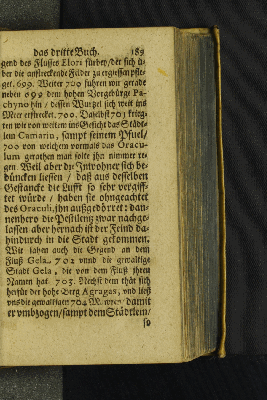 das dritte Buch. 189
gend des Flusses Elori fürbey/der sich ü-
ber die anstreckende Felder zu ergiessen pfle-
get. 699. Weiter 700 fuhren wir gerade
neben 699 dem hohen Vorgebürge Pa-
chyno hin / dessen Wurtzel sich weit ins
Meer erstrecket. 700. Daselbst 701 krieg-
ten wir von weitem ins Gesicht das Städt-
lein Camarin, sampt seinem Pfuel/
700 von welchem vormals das Oracu-
lum gerathen man solte ihn nimmer re-
gen. Weil aber die Inwohner sich be-
düncken liessen / daß aus desselben
Gestancke die Lufft so sehr vergiff-
tet würde / haben sie ohngeachtet
des Oraculi, ihn außgedörret: dan-
nenhero die Pestilentz zwar nachge-
lassen aber hernach ist der Feind da-
hindurch in die Stadt gekommen.
Wir sahen auch die Gegend an dem
Fluß Gela. 702 unnd die gewaltige
Stadt Gela, die von dem Fluß ihren
Namen hat 703. Nechst dem thät sich
herfür der hohe Berg Agragas, und ließ
uns die gewaltigen 704 damit
er umbzogen/sampt dem Städtlein/
so